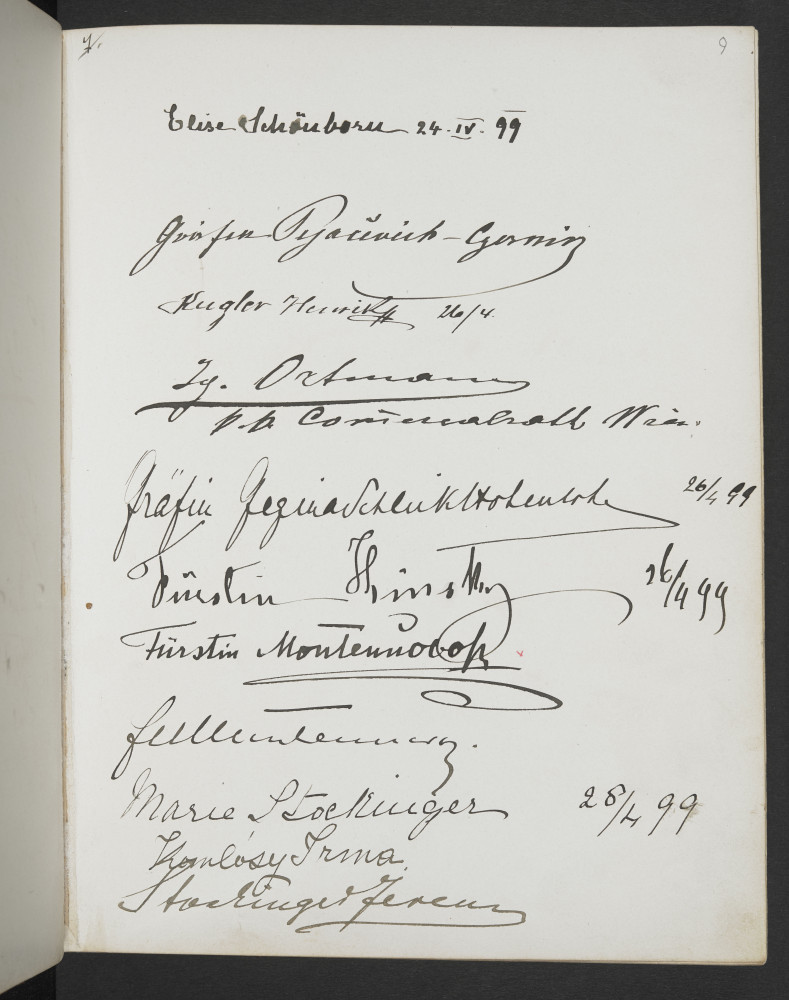 9
Elise Schönborn 24.IV.99
Gräfin Pejacsevich-Czernin
Kugler Henrik 26/4.
Ig. Ortmann
p.p. Commercialrath Wien.
Gräfin Regina Schlick Hohenlohe 26/4 99
Fürstin Kinsky 26/4 99
Fürstin Montenuovo
Marie Stockinger 28/4 99
Komlósy Irma.
Stockinger Ferencz